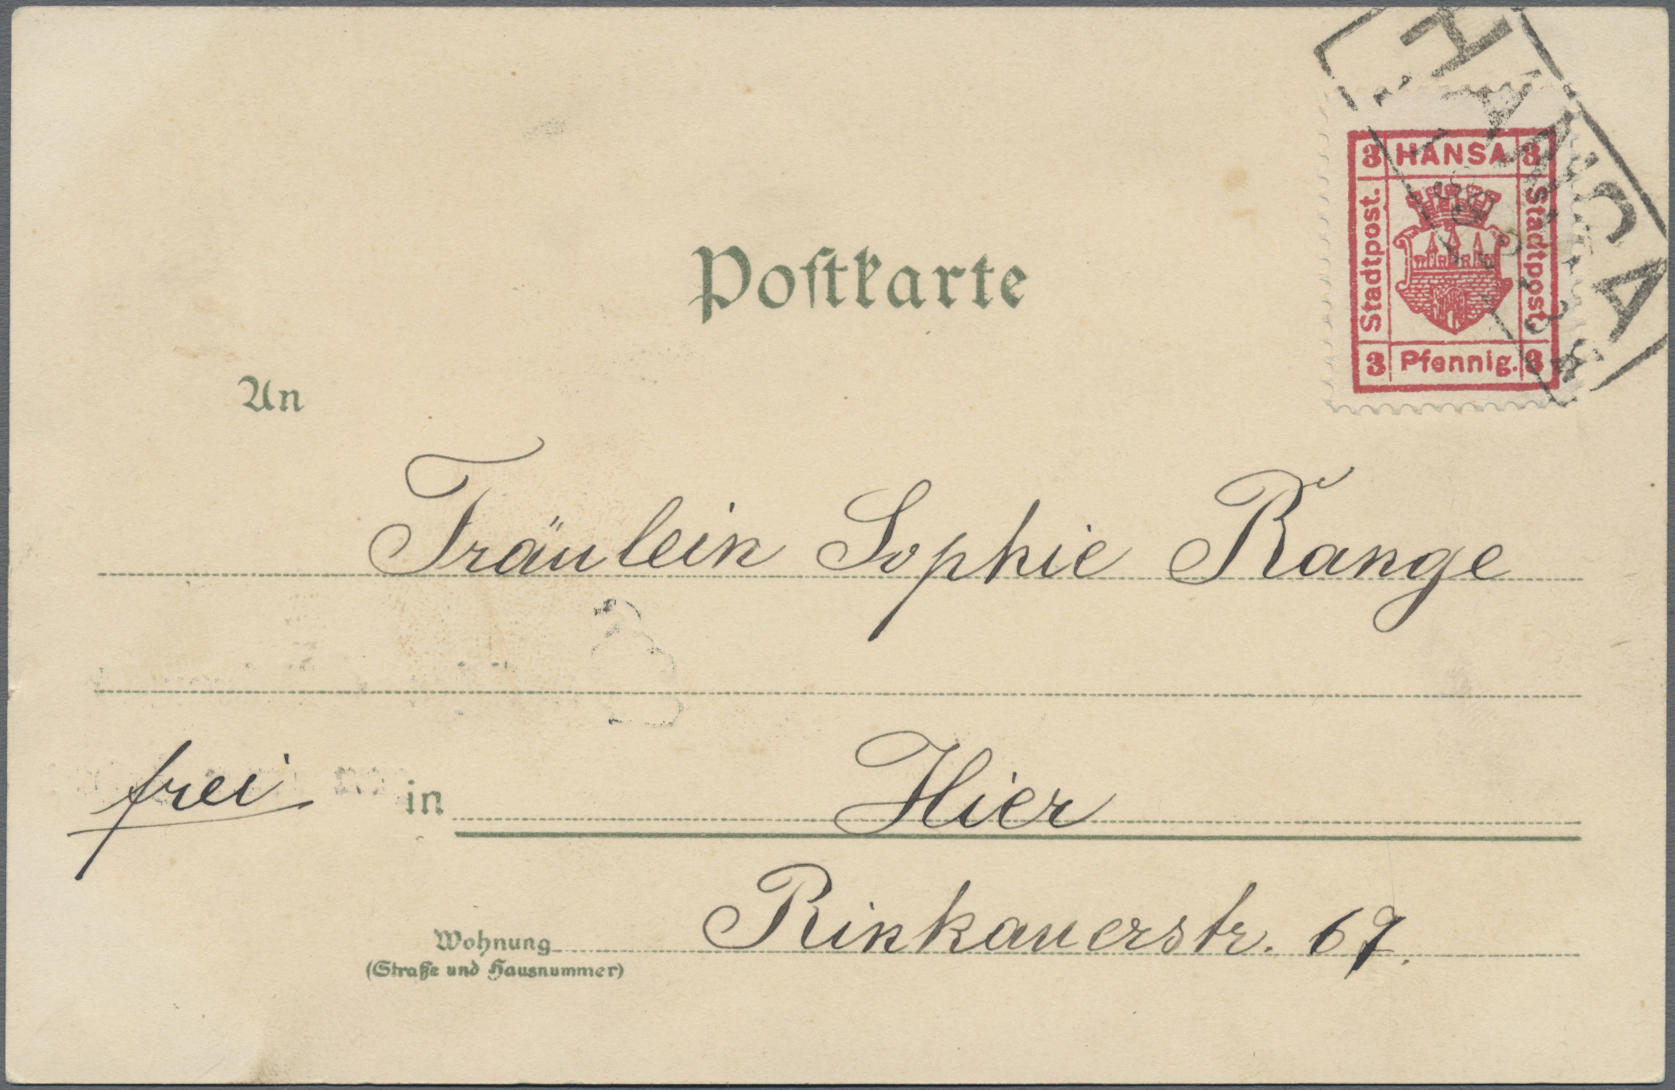 HANSA
3 HANSA 3
Stadtpost.
Stadtpost.
3 Pfennig. 3
Postkarte
An
Fräulein Sophie Range
frei
in Hier
Wohnung Rinkauerstr. 67.
(Straße und Hausnummer)